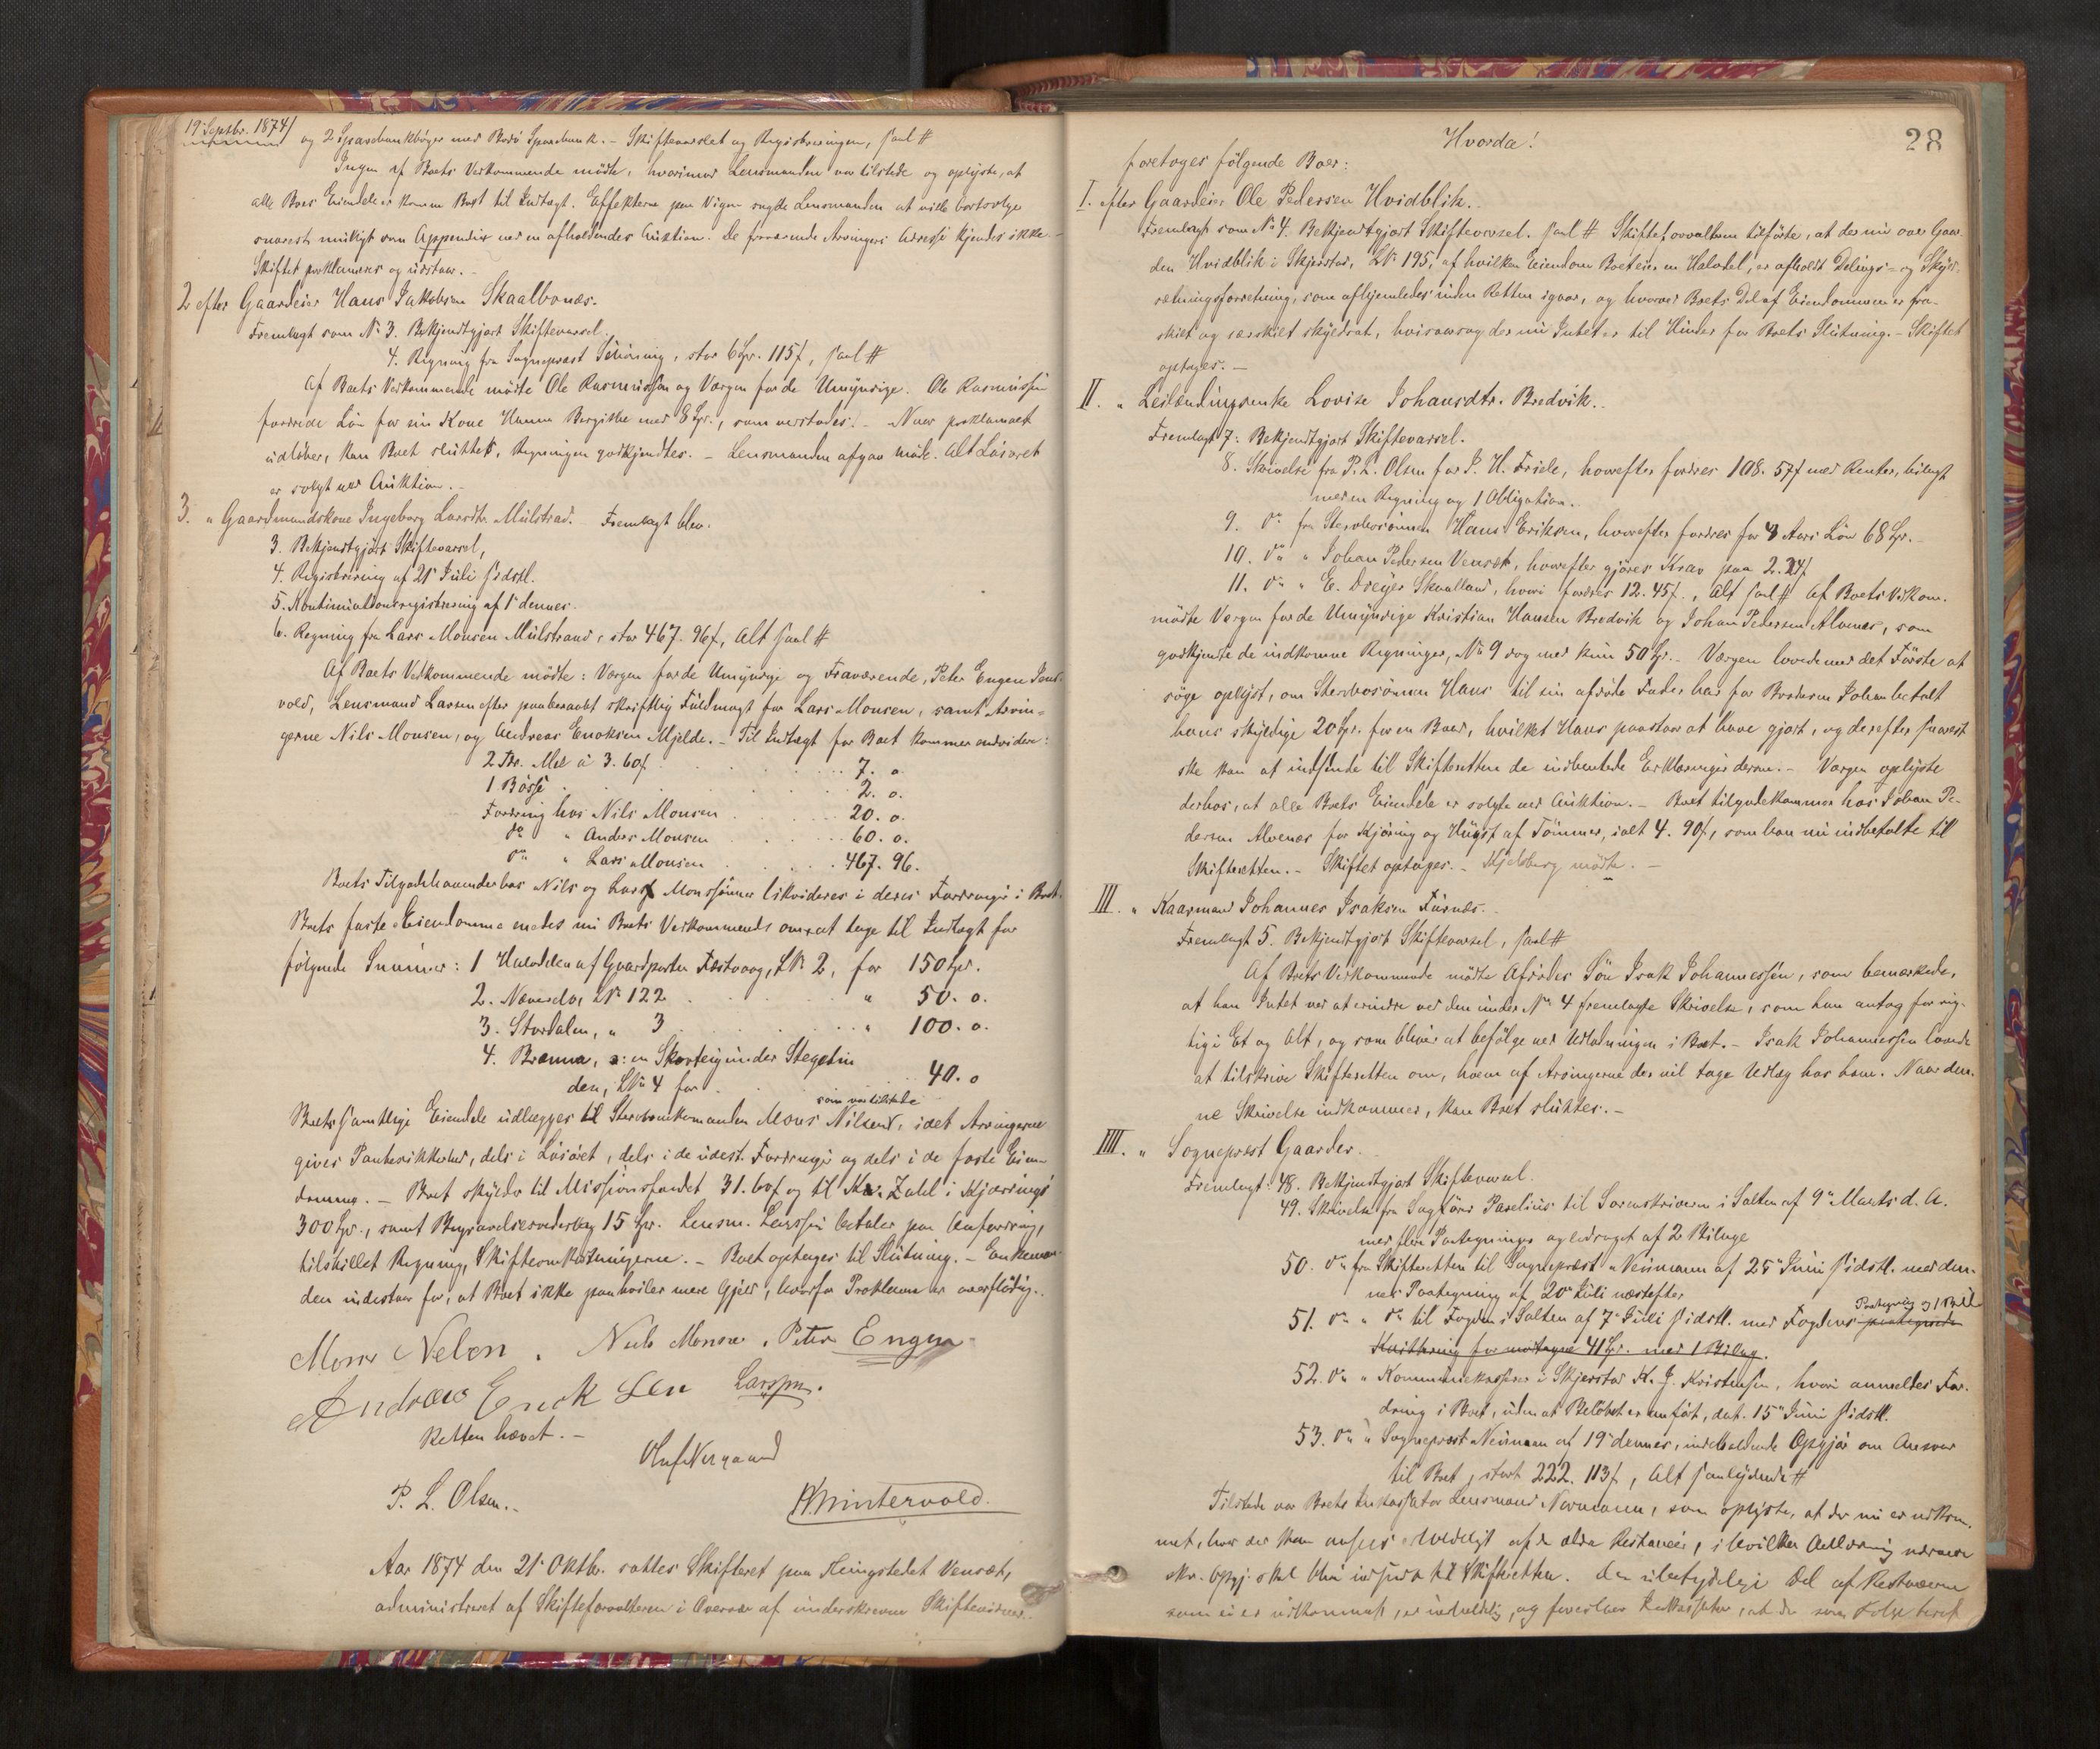 19' Septbr. 1874/
og 2 Sparebankbøger med Bodö Sparebank. - Skiftevarslet og Registreringen, saal #
Ingen af Boets Vedkommende mödte, hvorimod Lensmanden var tilstede og oplyste, at
alle Boets Eiendele er komne Boet til Indtægt. Effekterne paa Vigen sagde Lensmanden at ville bortsælge
snarest muligt som Appendix ved en afholdendes Auktion. De fraværende Arvingers Adresse kjendes ikke -
Skiftet proklameres og udstaar. -
2 efter Gaardeier Hans Jakobsen Skaalbonæs.
Fremlagt som No 3. Bekjendtgjort Skiftevarsel.
4. Regning fra Sogneprest , stor 6 Spr. 115 f, saal #
Af Boets Vedkommende mödte Ole Rasmussen og Værgen for de Umyndige. Ole Rasmussen
fordrede Lön for sin Kone Hanna Bergithe med 8 Spr., som verstodes. - Naar proklamaet
udlöber, kan Boet sluttes, Regningen godkjendtes. - Lensmanden afgav möde. Alt Lösöret
er solgt ved Auktion. -
3. " Gaardmandskone Ingeborg Larsdtr. Mulstrad. Fremlagt blev.
3. Bekjendtgjort Skiftevarsel,
4. Registrering af 21' Juli sidstl.
5. Kontinuationsregistrering af 1' dennes.
6. Regning fra Lars Monsen Mulstrand, stor 467. 96 f, alt saal #
Af Boets Vedkommende mödte: Værgen for de Umyndige og Fraværende, Peter Engen
vold, Lensmand Larsen efter paaberaabt skriftlig Fuldmagt for Lars Monsen, samt Arvin-
gerne Nils Monsen, og Andreas Enoksen Mjelde. - Til Indtægt for Boet kommer endvidere:
2 Tdr. Mel á 3. 60 f. 7. o
1 Bösse 2. o.
Fordring hos Nils Monsen 20. o.
do " Anders Monsen 60. o.
do " Lars Monsen 467. 96.
Boets Tilgodehavender hos Nils og Lars Monssönner likvideres i deres Fordringer i Boet.
Boets faste Eiendomme enedes nu Boets Vedkommende om at tage til Indtægt for
fölgende Summer: 1 Halvdelen af Gaardparten Fæstvaag, LNo 2, for 150 Spr.
2. Næverdal LNo 122 " 50. o.
3. Stordalen, " 3 " 100. o.
4. Brenna, o: en Skovteig under Stegetin
den, LNo 4 for 40. o
som var tilstede
Boets samtlige Eiendele udlægges til Stervboenkemanden Mons Nilsen, idet Arvingerne
gives Pantesikkerhed, dels i Lösöret, dels i de udest. Fordringer og dels i de faste Eien-
domme. - Boet skylder til Missionsfondet 31. 60 f og til Kr. Zahl i Kjærringö
300 Spr., samt Begravelsesvederlag 15 Spr. Lensm. Larssen betaler paa Anfordring,
tilstillet Regning, Skifteomkostningerne. - Boet optages til Slutning. - Enkeman-
den indestaar for, at Boet ikke paahviler mere Gjæld, hvorfor Proklama er overflödig. -
Mons Nelsen. Nils Monsen. Peter Engen
Andreas Enok Sen Larssen.
Retten hævet. -
Oluf Nergaard
P. L. Olsen. -
Wintervold.
Aar 1874 den 21' Oktbr. sattes Skifteret paa Thingstedet Vensæt,
administreret af Skifteforvalteren i Overvær af underskrevne Skiftevidner.
28
Hvorda!
foretoges fölgende Boer:
I. efter Gaardeier Ole Pedersen Hvidblik.
Fremlagt som No 4. Bekjendtgjort Skiftevarsel. saal # Skifteforvalteren tilförte, at der nu over Gaar-
den Hvidblik i Skjerstad, LNo 195, af hvilken Eiendom Boet eier en Halvdel, er afholdt Delings- og Skyld-
sætningsforretning, som afhjemledes inden Retten igaar, og hvorved Boets Del af Eiendommen er fra-
skilt og særskilt skyldsat, hvisaarsag der nu Intet er til Hinder for Boets Slutning. - Skiftet
optages. -
II. " Leilændingsenke Lovise Johansdtr. Bredvik.
Fremlagt 7: Bekjendtgjort Skiftevarsel.
8. Skrivelse fra P. L. Olsen for J. H. Friele, hvorefter fordres 108. 57 f med Renter, bilagt
med en Regning og 1 Obligation.
9. do fra Stervbosönnen Hans Eriksen, hvorefter fordres for 4 Aars Lön 68 Spr.
10. do " Johan Pedersen Vensæt, hvorefter gjöres Krav paa 2. 24 f
11. do " E. Dreyer Skvalland, hvori fordres 12. 45 f., Alt saal # Af Boets Vedkom.
mödte Værgen for de Umyndige Kristian Hansen Bredvik og Johan Pedersen Alvenes, som
godkjendte de indkomne Regninger, No 9 dog med kun 50 Spr. - Værgen lovede med det Förste at
söge oplyst, om Stervbosönnen Hans til sin afdöde Fader har for Broderen Johan betalt
hans skyldige 20 Spr. for en Baad, hvilket Hans paastaar at have gjort, og derefter snarest
ske kan at indsende til Skifteretten de indhentede Erklæringer derom. - Værgen oplyste
derhos, at alle Boets Eiendele er solgte ved Auktion. - Boet tilgodekommer hos Johan Pe-
dersen Alvenes for Kjöring og Hugst af Tömmer, ialt 4. 90 f, som han nu indbetalte til
Skifteretten. - Skiftet optages. - Mjelsberg mödte. -
III. " Kaarmand Johannes Isaksen Furnæs.
Fremlagt 5. Bekjendtgjort Skiftevarsel, saal #
Af Boets Vedkommende mödte Afdödes Sön Isak Johannessen, som bemærkede,
at han Intet ved at erindre ved den under No 4 fremlagte Skrivelse, som han antog for rig-
tig i Et og Alt, og som bliver at befölge ved Udlodningen i Boet. - Isak Johannessen lovede
at tilskrive Skifteretten om, hvem af Arvingerne der vil tage Udlæg hos ham. Naar den-
ne Skrivelse indkommer, kan Boet sluttes. -
IIII. " Sogneprest Gaarder.
Fremlagt: 48. Bekjendtgjort Skiftevarsel.
49. Skrivelse fra Sagförer Paselius til Sorenskriveren i Salten af 9' Marts d. A.
med flere Paategninger og ledsaget af 2 Bilage
50. do fra Skifteretten til Sogneprest Neumann af 25' Juni sidstl. med den-
nes Paategning af 20' Juli næstefter
51. do " do til Fogden i Salten af 7' Juli sidstl. med Fogdens Paategning og 1 Bil.
Kvittering for modtagne 41 Spr. med 1 Bilag.
52. do " Kommunekasserer i Skjerstad K. J. Kristensen, hvori anmeldes For-
dring i Boet, uden at Belöbet er anfört, dat. 15' Juni sidstl.
53. do " Sogneprest Neumann af 19' dennes, indeholdende Opgjör om Ansvar
til Boet, stort 222. 113 f, Alt saalydende #
Tilstede var Boets Inkassator Lensmand Normann, som oplyste, at der nu er indkom-
met, hvad der kan ansees erholdeligt af de ældre Restancer, i hvilken Anledning nærmere
skr. Opgj. skal blive indsendt til Skifteretten. Den ubetydelige Del af Restancerne
som ei er indkommet, er uerholdelig, og foreslaar Inkassator, at de som Fölge heraf